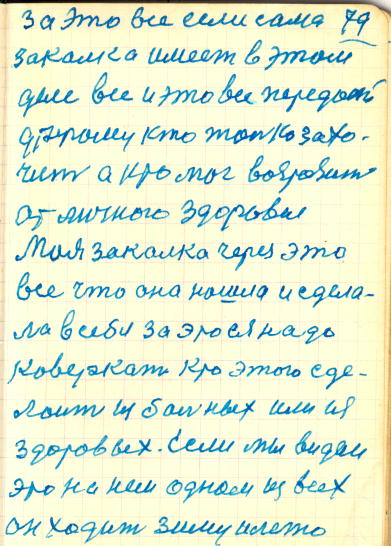 за это все если сама 79
закалка имеет в этом
деле все и это все передает
другому кто только захо-
чит а кто мог возразит
от личного здоровья
Моя закалка через это
все что она нашла и сдела-
ла в себя за это ся надо
коверкат кто этого сде-
лоит из больных или из
здоровых. Если мы видем
это на нем одном из всех
он ходит зиму илето